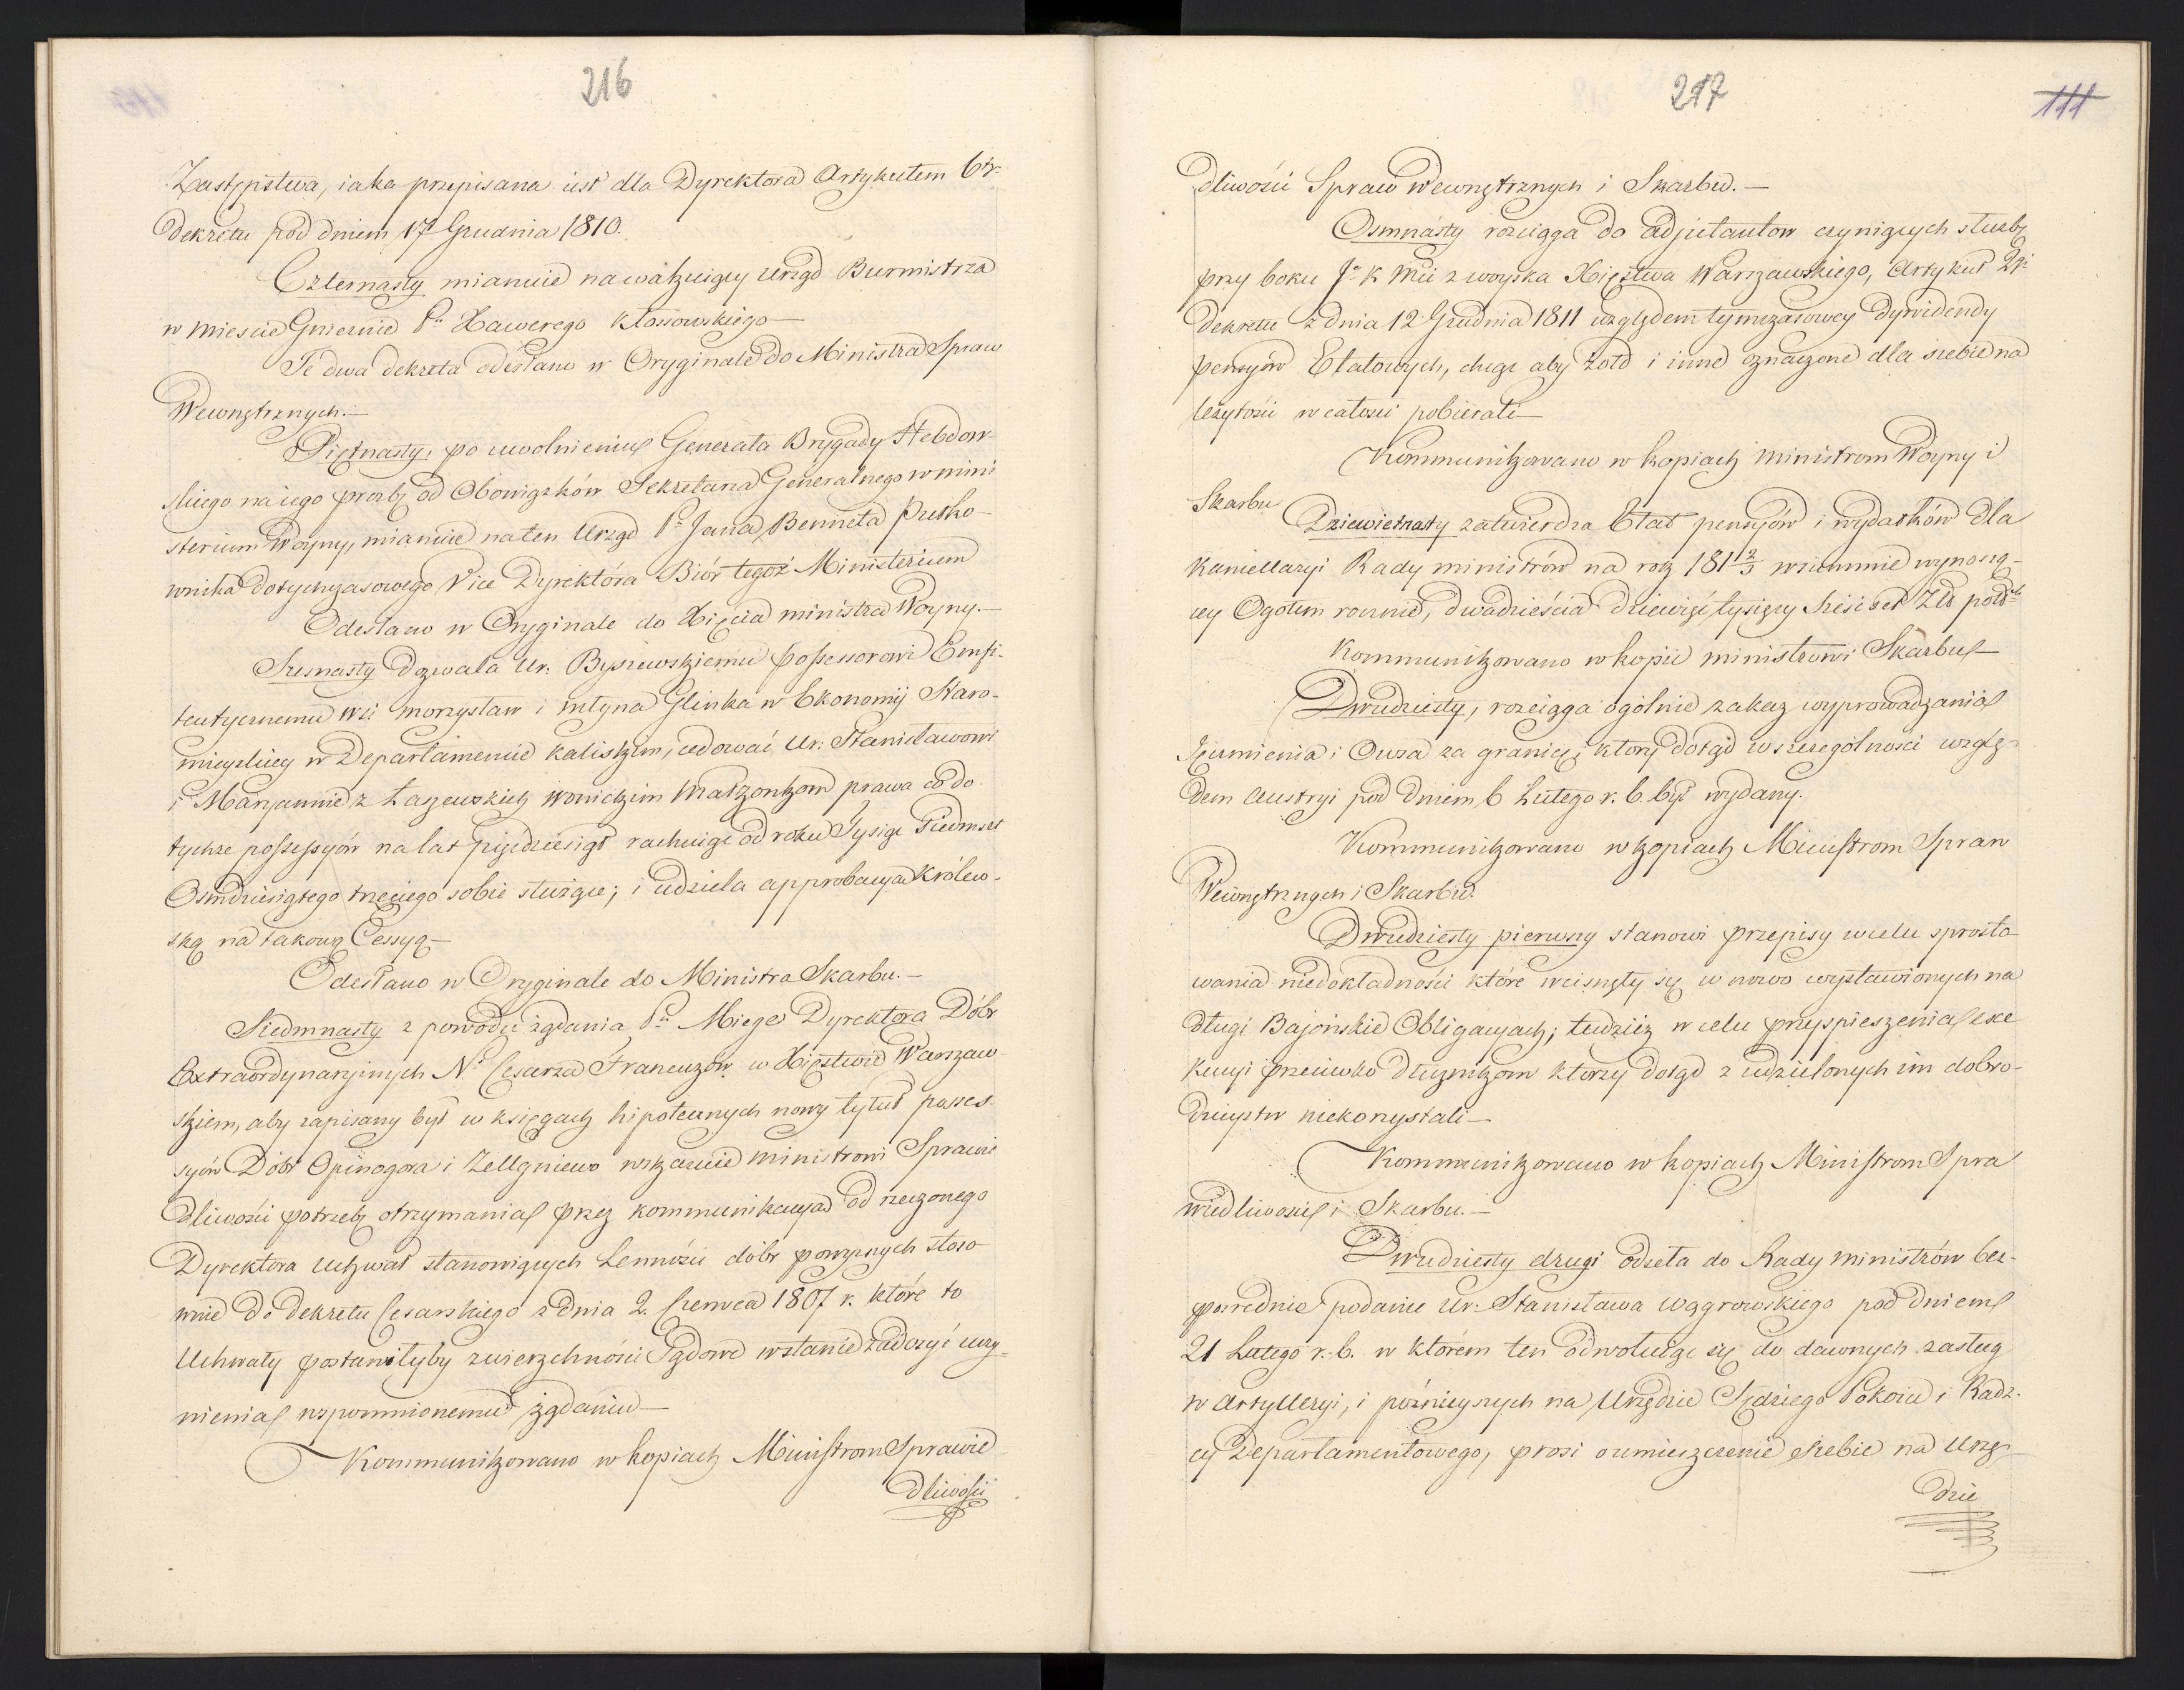 216
Zastępstwa, iaka przepisana iest dla Dyrektora Artykułem 6tr.
Dekretu pod dniem 17 Grudnia 1810.
Czternasty mianuie na wakuiący Urząd Burmistrza
w Miescie Gnieznie Pa Xawerego Kłossowskiego —
Te dwa dekreta odesłano w Oryginale do Ministra Spraw
Wewnętrznych. —
Piętnasty, po uwolnieniu Generała Brygady Hebdow-
skiego na iego prozbę od Obowiązków Sekretarza Generalnego w mini
sterium Woyny, mianuie na ten Urząd Pa Jana Benneta Pułko-
wnika dotychczasowego Vice Dyrektora Biór tegoż Ministerium
Odesłano w Oryginale do Xięcia ministra Woyny. —
Szesnasty Dozwala Ur: Byszewskiemu possessorowi Emfi-
teutycznemu wsi Morzysław i młyna Glinka w Ekonomij Staro-
mieyskiey w Departamencie Kaliskim, cedować Ur: Stanisławowi
i Maryannie z Łaszewskich małżonkom prawa co do
tychże possessyów na lat pięćdziesiąt rachuiąc od roku Tysiąc Siedmset
Osmdziesiątego trzeciego sobie służące; i udziela approbacya Królew-
ską na takową Cessyą —
Odesłano w Oryginale do Ministra Skarbu. —
Siedmnasty z powodu żądania Pa Miege Dyrektora Dóbr
Extraordynaryinych No Cesarza Francuzów w Xięstwie Warszaw-
skiem, aby zapisany był w księgach hipotecznych nowy tytuł posses-
syów Dóbr Opinogora i Zellgniewo wskazuie ministrowi Sprawie
dliwości potrzebę otrzymania przez kommunikacya od rzeczonego
Dyrektora uchwał stanowiących Lennośći dóbr powyższych stoso-
wnie do dekretu Cesarskiego z dnia 2. Czerwca 1807 r. które to
Uchwały postawiłyby zwierzchności Sądowe w stanie zadosyć uczy-
nienia wspomnionemu żądaniu —
Kommunikowano w kopiach Ministrom Sprawie
dliwości
217
111
dliwości Spraw Wewnętrznych i Skarbu. —
Osmnasty rozciąga do Adjutantów czyniących służbę
przy boku Jo K Mci z woyska Xięstwa Warszawskiego, Artykuł 2gi
Dekretu z dnia 12 Grudnia 1811 względem tymczasowey Dywidendy
pensyów Etatowych, chcąc aby żołd i inne oznaczone dla siebie na
leżytośći w całości pobierali —
Kommunikowano w kopiach ministrom Woyny i
Skarbu
Dziewietnasty zatwierdza Etat pensyów i wydatków dla
Kancellaryi Rady ministrów na rok 181 2/3 w summie wynoszą-
cy Ogołem rocznie, dwadzieścia dziewięć tysięcy sześć set Złt pols.
Kommunikowano w kopii ministrowi Skarbu —
Dwudziesty, rozciąga ogólnie zakaz wyprowadzania
Jęczmienia i Owsa za granicę, który dotąd w szczególności wzglę-
dem Austryi pod dniem 6 Lutego r. b. był wydany.
Kommunikowano w kopiach Ministrom Spraw
Wewnętrznych i Skarbu.
Dwudziesty pierwszy stanowi przepisy w celu sprosto
wania niedokładności które wcisnęły się w nowo wystawionych na
długi Bajońskie Obligacyach; tudzież w celu przyspieszenia exe
kucyi przeciwko dłużnikom którzy dotąd z udzielonych im dobro-
dzieystw niekorzystali —
Kommunikowano w kopiach Ministrom Spra
wiedliwości i Skarbu. —
Dwudziesty drugi odseła do Rady ministrów bez-
posrednie podanie Ur. Stanisława Wągrowskiego pod dniem
21 Lutego r. b. w którém ten odwołuiąc się do dawnych zasług
w Artylleryi, i poźnieyszych na Urzędzie Sędziego Pokoiu i Radz-
cy Departamentowego, prosi o umieszczenie siebie na Urzę-
dzie